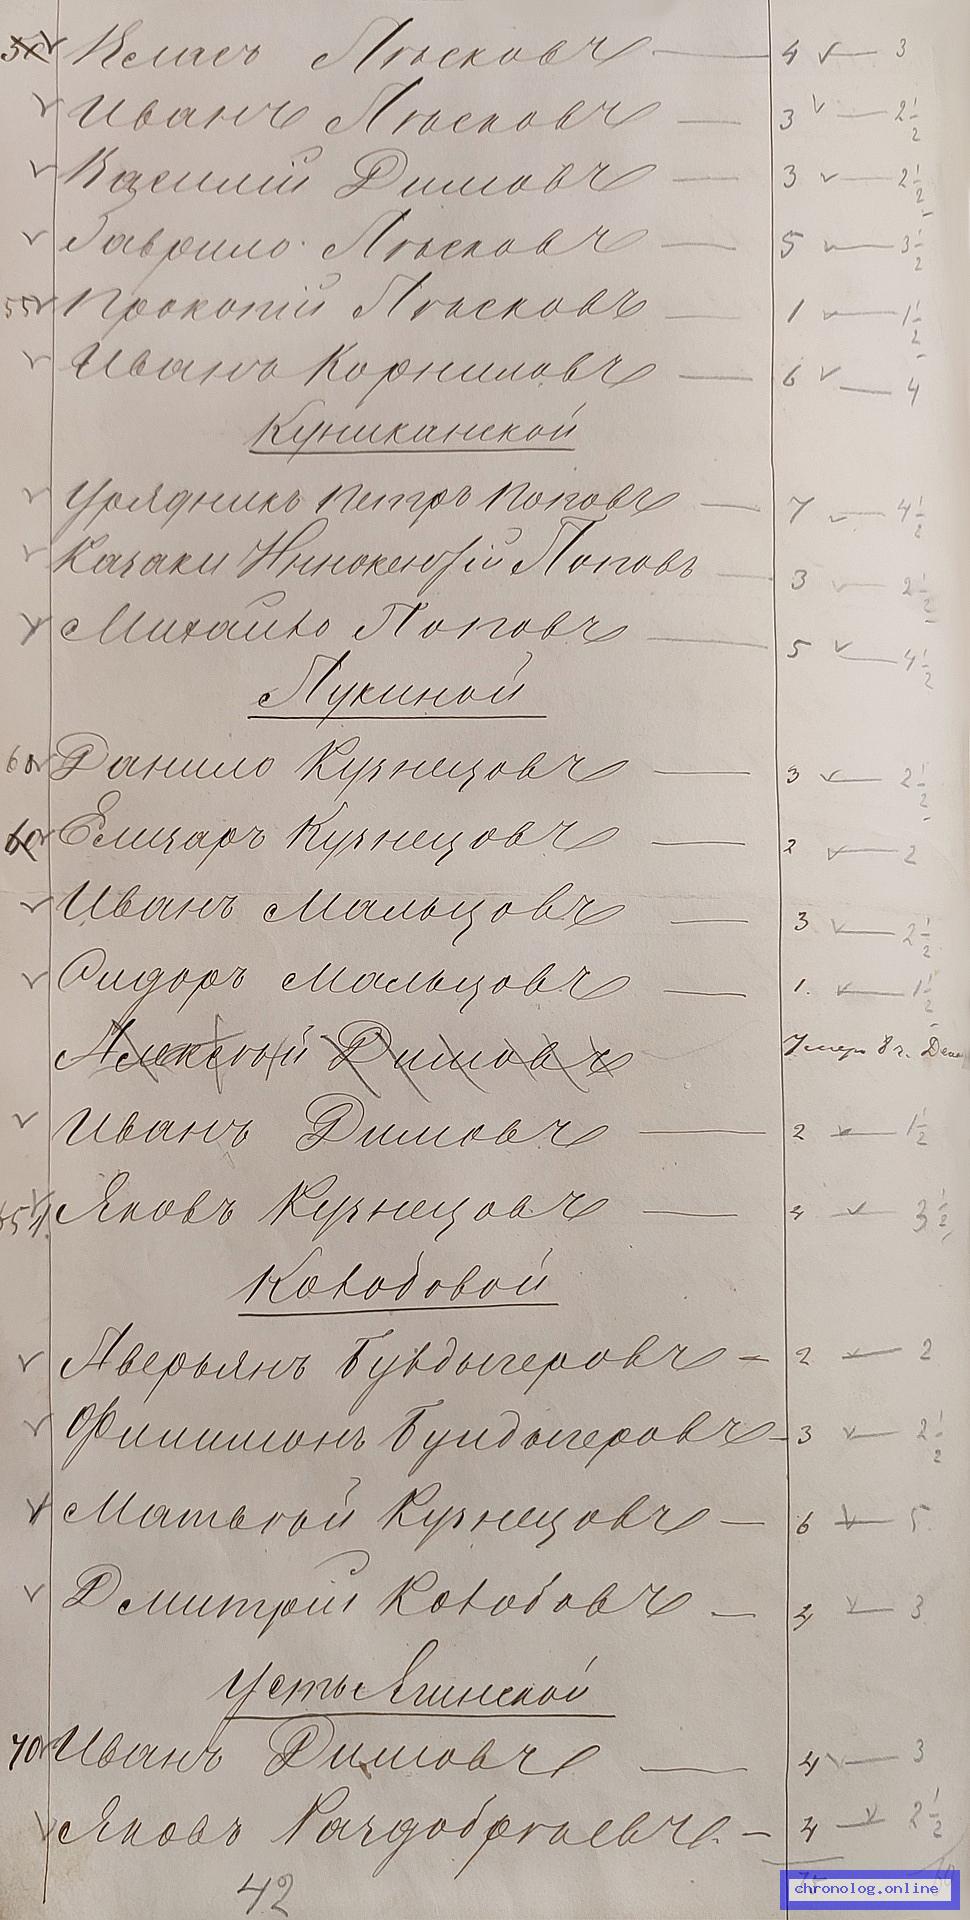 Иванъ Лѣсковъ — 3 — 2 1/2
Василій Димовъ — 3 — 2 1/2
Гаврило Лѣсковъ — 5 — 3 1/2
55 Прокопій Лѣсковъ — 1 — 1 1/2
Иванъ Корниловъ — 6 — 4
Куниканской
Урядникъ Петръ Поповъ — 7 — 4 1/2
Казаки Иннокентій Поповъ — 3 — 2 1/2
Михайло Поповъ — 5 — 4 1/2
Лукиной
60 Данило Кузнецовъ — 3 — 2 1/2
Елизаръ Кузнецовъ — 2 — 2
Иванъ Мальцовъ — 3 — 2 1/2
Сидоръ Мальцовъ — 1. — 1 1/2
Алексѣй Димовъ Умеръ 8 г.
Иванъ Димовъ — 2 — 1 1/2
Яковъ Кузнецовъ — — 3 1/2
Колобовой
Аверьянъ Булдыгеровъ — 2 — 2
Филимонъ Булдыгеровъ — 3 — 2 1/2
Матвѣй Кузнецовъ — 6 — 5
Дмитрій Колобовъ — — 3
Усть Ягинской
70 Иванъ Димовъ — 4 — 3
Яковъ Раздобрѣевъ. — 4 — 2 1/2
42
chronolog.online